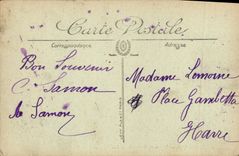 Carte Postale
Correspondance
Adresse
Bon Souvenir
C. Samon
Samon
Madame Lemoine
Place Gambetta
Havre